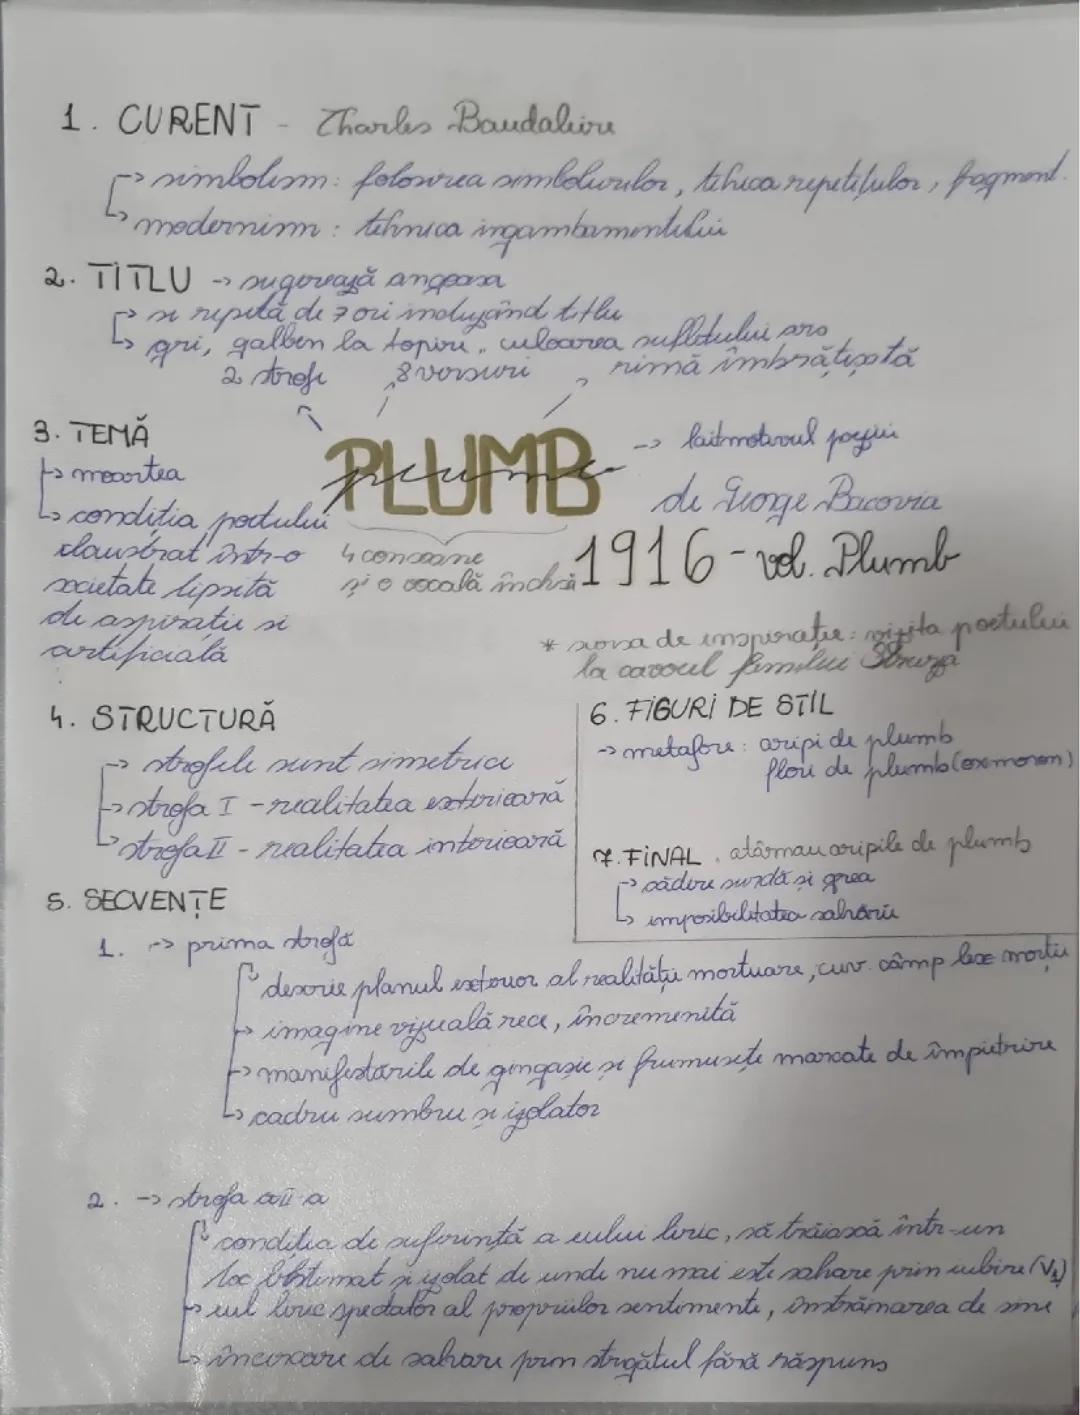 1. CURENT - Charles Baudaleire
→ simbolism: folosirea simbolurilor, tehica repetițiilor, fragment.
→ modernism: tehnica ingambamentului
2. TITLU → sugerează angoasa
→ se repetă de 7 ori incluzând titlu
→ gri, galben la topire, culoarea sufletului ars
2 strofe 8 versuri rimă îmbrățișată
3. TEMĂ
→ moartea
→ condiția poetului
claustrat într-o
societate lipsită
de aspirație si
artificială
PLUMB
plumb
→ laitmotivul poeziei
de George Bacovia
4 consoane
și o vocală închisă
1916 - vol. Plumb
* sursa de inspirație: vizita poetului
la cavoul familiei Sturza
4. STRUCTURĂ
→ strofele sunt simetrice
→ strofa I - realitatea exterioară
→ strofa II - realitatea interioară
6. FIGURI DE STIL
→ metafore: aripi de plumb
flori de plumb (oximoron)
7. FINAL atârnau aripile de plumb
→ cădere surdă și grea
→ imposibilitatea salvării
5. SECVENȚE
1. → prima strofă
→ descrie planul exterior al realității mortuare, cuv. câmp lex morții
→ imagine vizuală rece, încremenită
→ manifestările de gingașie și frumusețe marcate de împietrire
→ cadru sumbru și izolator
2. → strofa a II a
→ condiția de suferință a eului liric, să trăiască într-un
loc blestemat și izolat de unde nu mai este salvare prin iubire (V1)
→ eul liric spectator al propriilor sentimente, înstrăinarea de sine
→ încercare de salvare prin strigătul fără răspuns